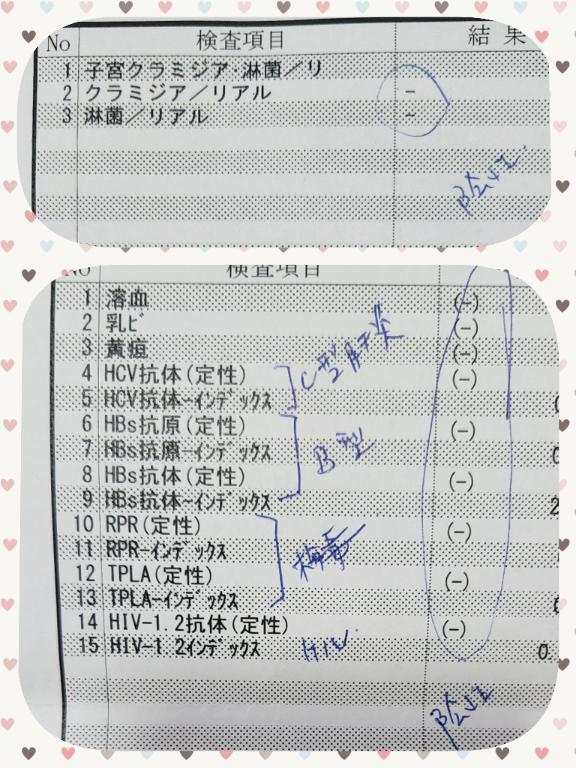 No 検査項目 結果
1 子宮クラミジア･淋菌／リ
2 クラミジア／リアル －
3 淋菌／リアル －
陰性.
No 検査項目
1 溶血 (-)
2 乳ビ (-)
3 黄疸 (-)
4 HCV抗体(定性) (-)
5 HCV抗体-インデックス
C型肝炎
6 HBs抗原(定性) (-)
7 HBs抗原-インデックス
8 HBs抗体(定性) (-)
9 HBs抗体-インデックス 2
B型
10 RPR(定性) (-)
11 RPR-インデックス
12 TPLA(定性) (-)
13 TPLA-インデックス
梅毒
14 HIV-1.2抗体(定性) (-)
15 HIV-1.2インデックス 0.
HIV.
陰性